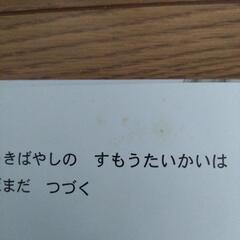 きばやしの すもうたいかいは
まだ つづく